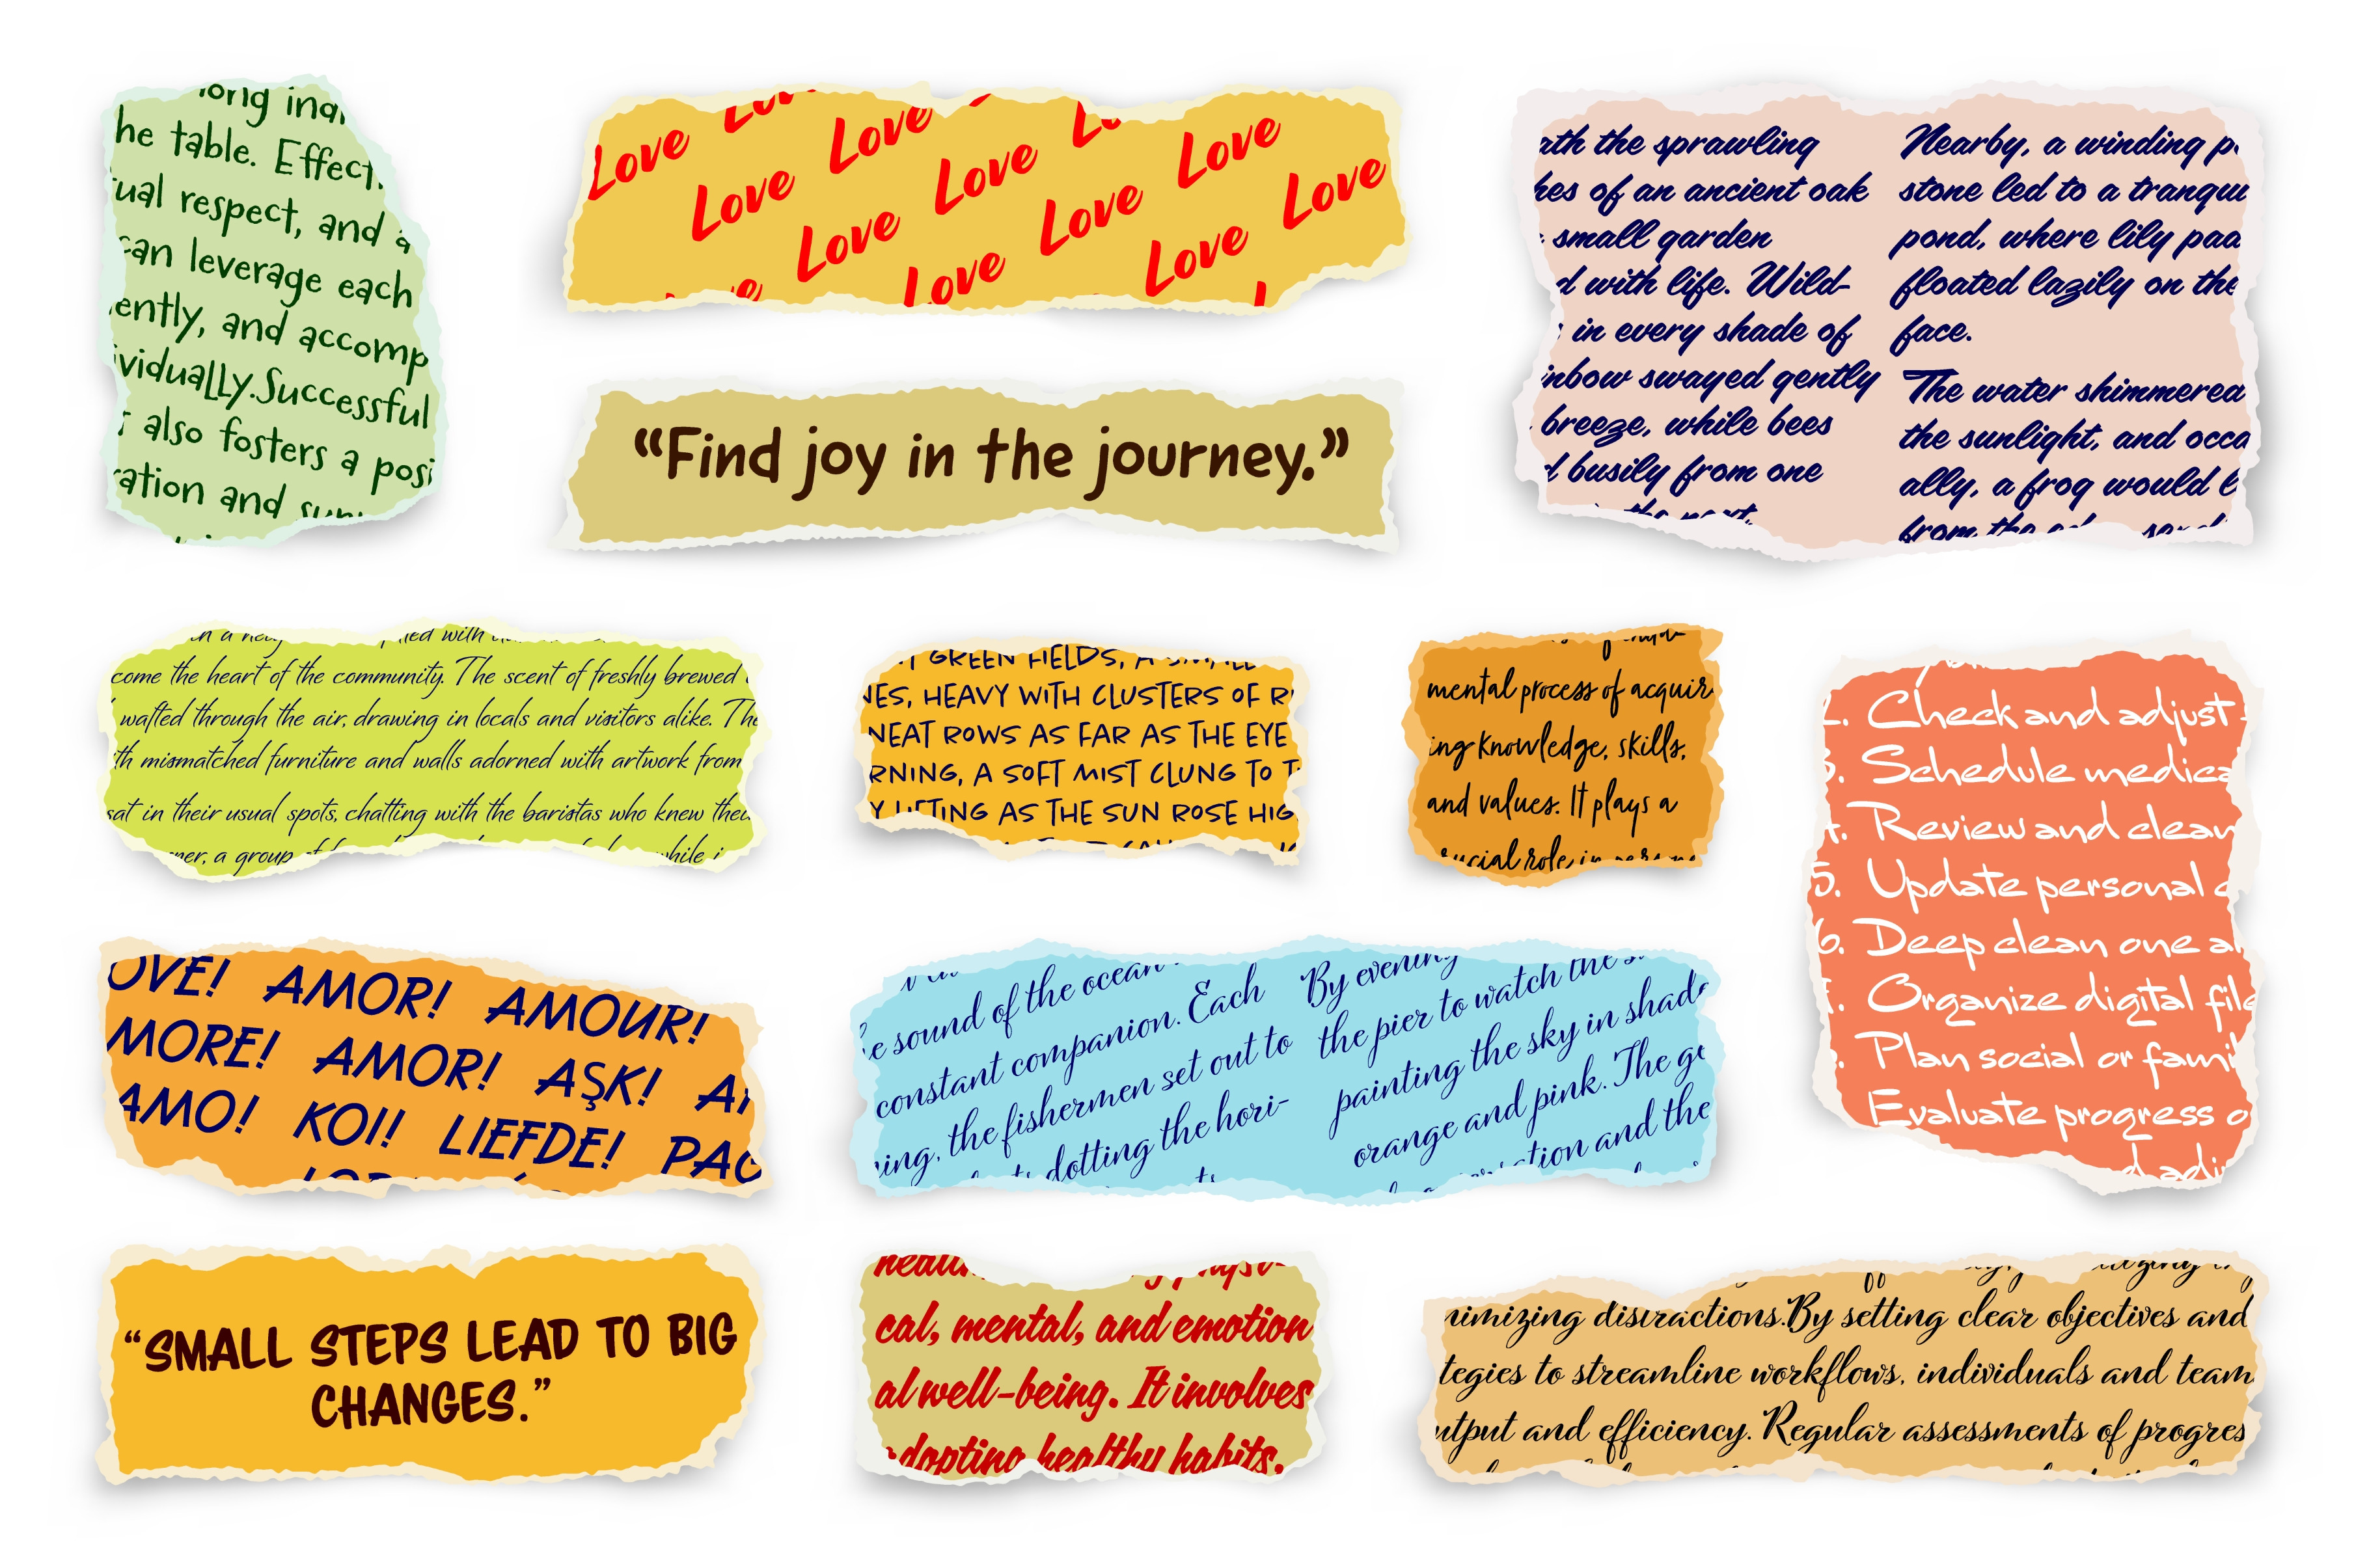 he table. Effect
ual respect, and a
can leverage each
ently, and accomp
viduaLLy.Successful
also fosters a posi
ration and
Love Love
Love Love Love
Love Love Love
Love Love Love
“Find joy in the journey.”
ath the sprawling
hes of an ancient oak
small garden
d with life. Wild-
in every shade of
nbow swayed gently
breeze, while bees
d busily from one
the next.
Nearby, a winding p
stone led to a tranqui
pond, where lily pad
floated lazily on the
face.
The water shimmered
the sunlight, and occa
ally, a frog would l
from the
come the heart of the community. The scent of freshly brewed
wafted through the air, drawing in locals and visitors alike. The
th mismatched furniture and walls adorned with artwork from
sat in their usual spots, chatting with the baristas who knew their
ner, a group of while i
GREEN FIELDS, A SMALL
NES, HEAVY WITH CLUSTERS OF RI
NEAT ROWS AS FAR AS THE EYE
RNING, A SOFT MIST CLUNG TO T
Y LIFTING AS THE SUN ROSE HIG
mental process of acquir-
ing knowledge, skills,
and values. It plays a
crucial role in
2. Check and adjust
3. Schedule medica
4. Review and clean
5. Update personal
6. Deep clean one a
7. Organize digital file
Plan social or famil
Evaluate progress o
OVE! AMOR! AMOUR!
MORE! AMOR! AŞK! A
AMO! KOI! LIEFDE! PAG
e sound of the ocean
constant companion. Each
ing, the fishermen set out to
dotting the hori-
By evening
the pier to watch the s
painting the sky in shade
orange and pink. The ge
and the
“SMALL STEPS LEAD TO BIG
CHANGES.”
cal, mental, and emotion
al well-being. It involves
adopting healthy habits,
nimizing distractions.By setting clear objectives and
tegies to streamline workflows, individuals and team
utput and efficiency. Regular assessments of progres